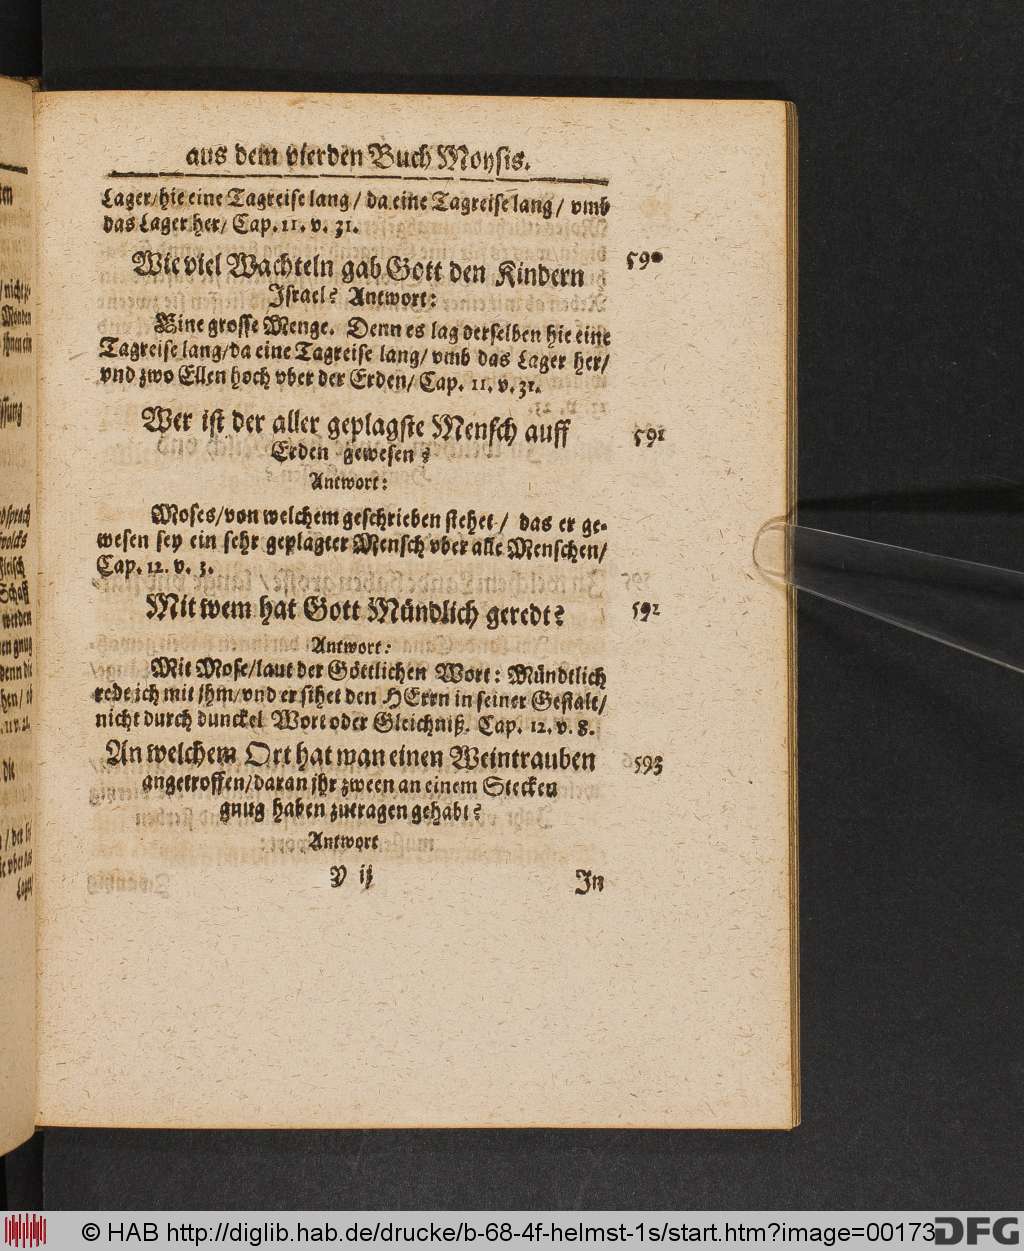 aus dem vierden Buch Moysis.
Lager/hie eine Tagreise lang / da eine Tagreise lang / vmb
das Lager her/ Cap. 11. v. 31.
Wie viel Wachteln gab Gott den Kindern
590
Israel? Antwort:
Eine grosse Menge. Denn es lag derselben hie eine
Tagreise lang/da eine Tagreise lang/ vmb das Lager her/
vnd zwo Ellen hoch vber der Erden/ Cap. 11. v. 31.
Wer ist der aller geplagste Mensch auff
591
Erden gewesen?
Antwort:
Moses/von welchem geschrieben stehet / das er ge-
wesen sey ein sehr geplagter Mensch vber alle Menschen/
Cap. 12. v. 3.
Mit wem hat Gott Mündlich geredt?
592
Antwort:
Mit Mose/laut der Göttlichen Wort: Mündtlich
rede ich mit jhm/vnd er sihet den HErrn in seiner Gestalt/
nicht durch dunckel Wort oder Gleichniß. Cap. 12. v. 8.
An welchem Ort hat man einen Weintrauben
593
angetroffen/daran jhr zween an einem Stecken
gnug haben zutragen gehabt?
Antwort
V ij
In
© HAB http://diglib.hab.de/drucke/b-68-4f-helmst-1s/start.htm?image=00173
DFG